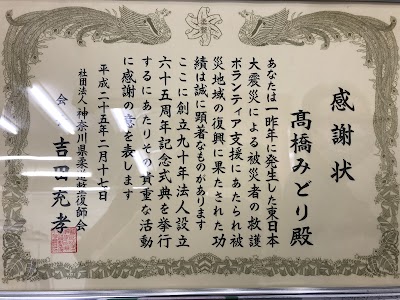 感謝状
髙橋みどり殿
あなたは一昨年に発生した東日本
大震災による被災者の救護
ボランティア支援にあたられ被
災地域の復興に果たされた功
績は誠に顕著なものがあります
ここに創立九十年法人設立
六十五周年記念式典を挙行
するにあたりその貴重な活動
に感謝の意を表します
平成二十五年二月十七日
社団法人神奈川県柔道整復師会
会 吉田充孝